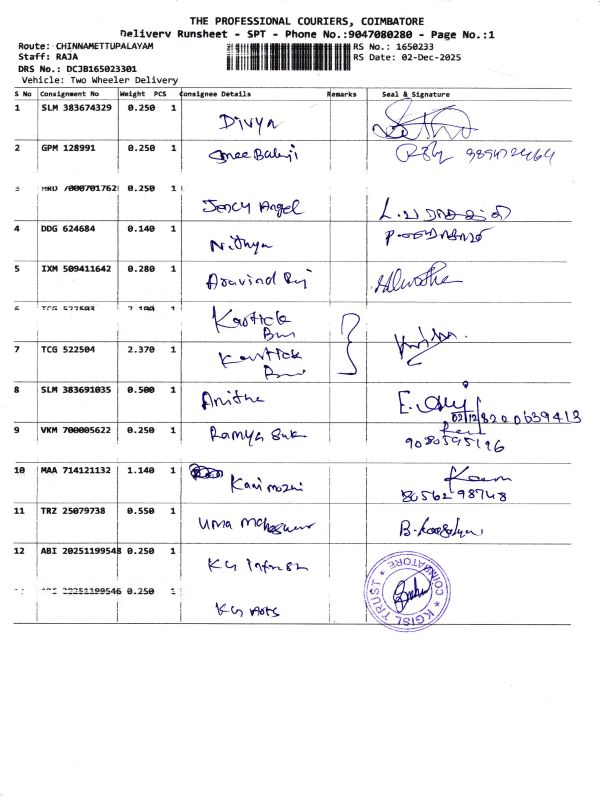 THE PROFESSIONAL COURIERS, COIMBATORE
Delivery Runsheet - SPT - Phone No.:9047080280 - Page No.:1
Route: CHINNAMETTUPALAYAM RS No.: 1650233
Staff: RAJA RS Date: 02-Dec-2025
DRS No.: DCJB165023301
Vehicle: Two Wheeler Delivery
S No Consignment No Weight PCS Consignee Details Remarks Seal & Signature
1 SLM 383674329 0.250 1
Divya
2 GPM 128991 0.250 1
Sree Balaji
7000701762 0.250 1
Jency Angel
4 DDG 624684 0.140 1
Nithya
5 IXM 509411642 0.280 1
Aravind Raj
6 TCG 1
Kartick
7 TCG 522504 2.370 1
Kartick
8 SLM 383691035 0.500 1
Anitha
9 VKM 700005622 0.250 1
Ramya Suk
9080595196
10 MAA 714121132 1.140 1
Kanimozhi
8056298748
11 TRZ 25079738 0.550 1
Uma Maheswari
12 ABI 20251199548 0.250 1
KG
20251199546 0.250 1
KG Arts
COIMBATORE * KGISL TRUST *